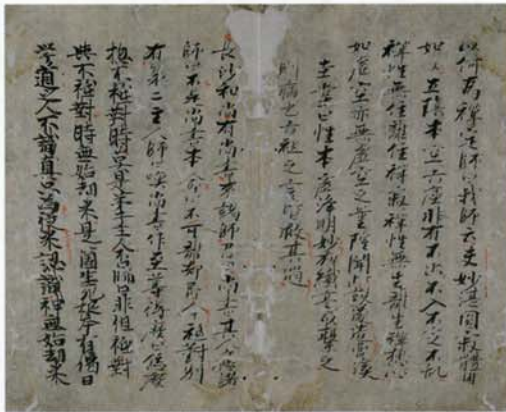 以何為禪定師曰我師云夫妙湛圓寂體用
如如五陰本空六塵非有不出不入不定不亂
禪性無住離住禪寂禪性無生離生禪想心
如虛空亦無虛空之量隍聞
曰性本虛淨明妙有纖
則病也古祖之言
長沙和尚有尚書來謁師召曰尚書其人應諾
師曰不是尚書本命曰不可離却即今祗對別
有第二主人師曰喚尚書作至尊得麼曰恁麼
揔不祗對時莫是弟子主人否師曰非但祗對
與不祗對時無始劫來是箇生死根本有偈曰
學道之人不識真只為從來認識神無始劫來